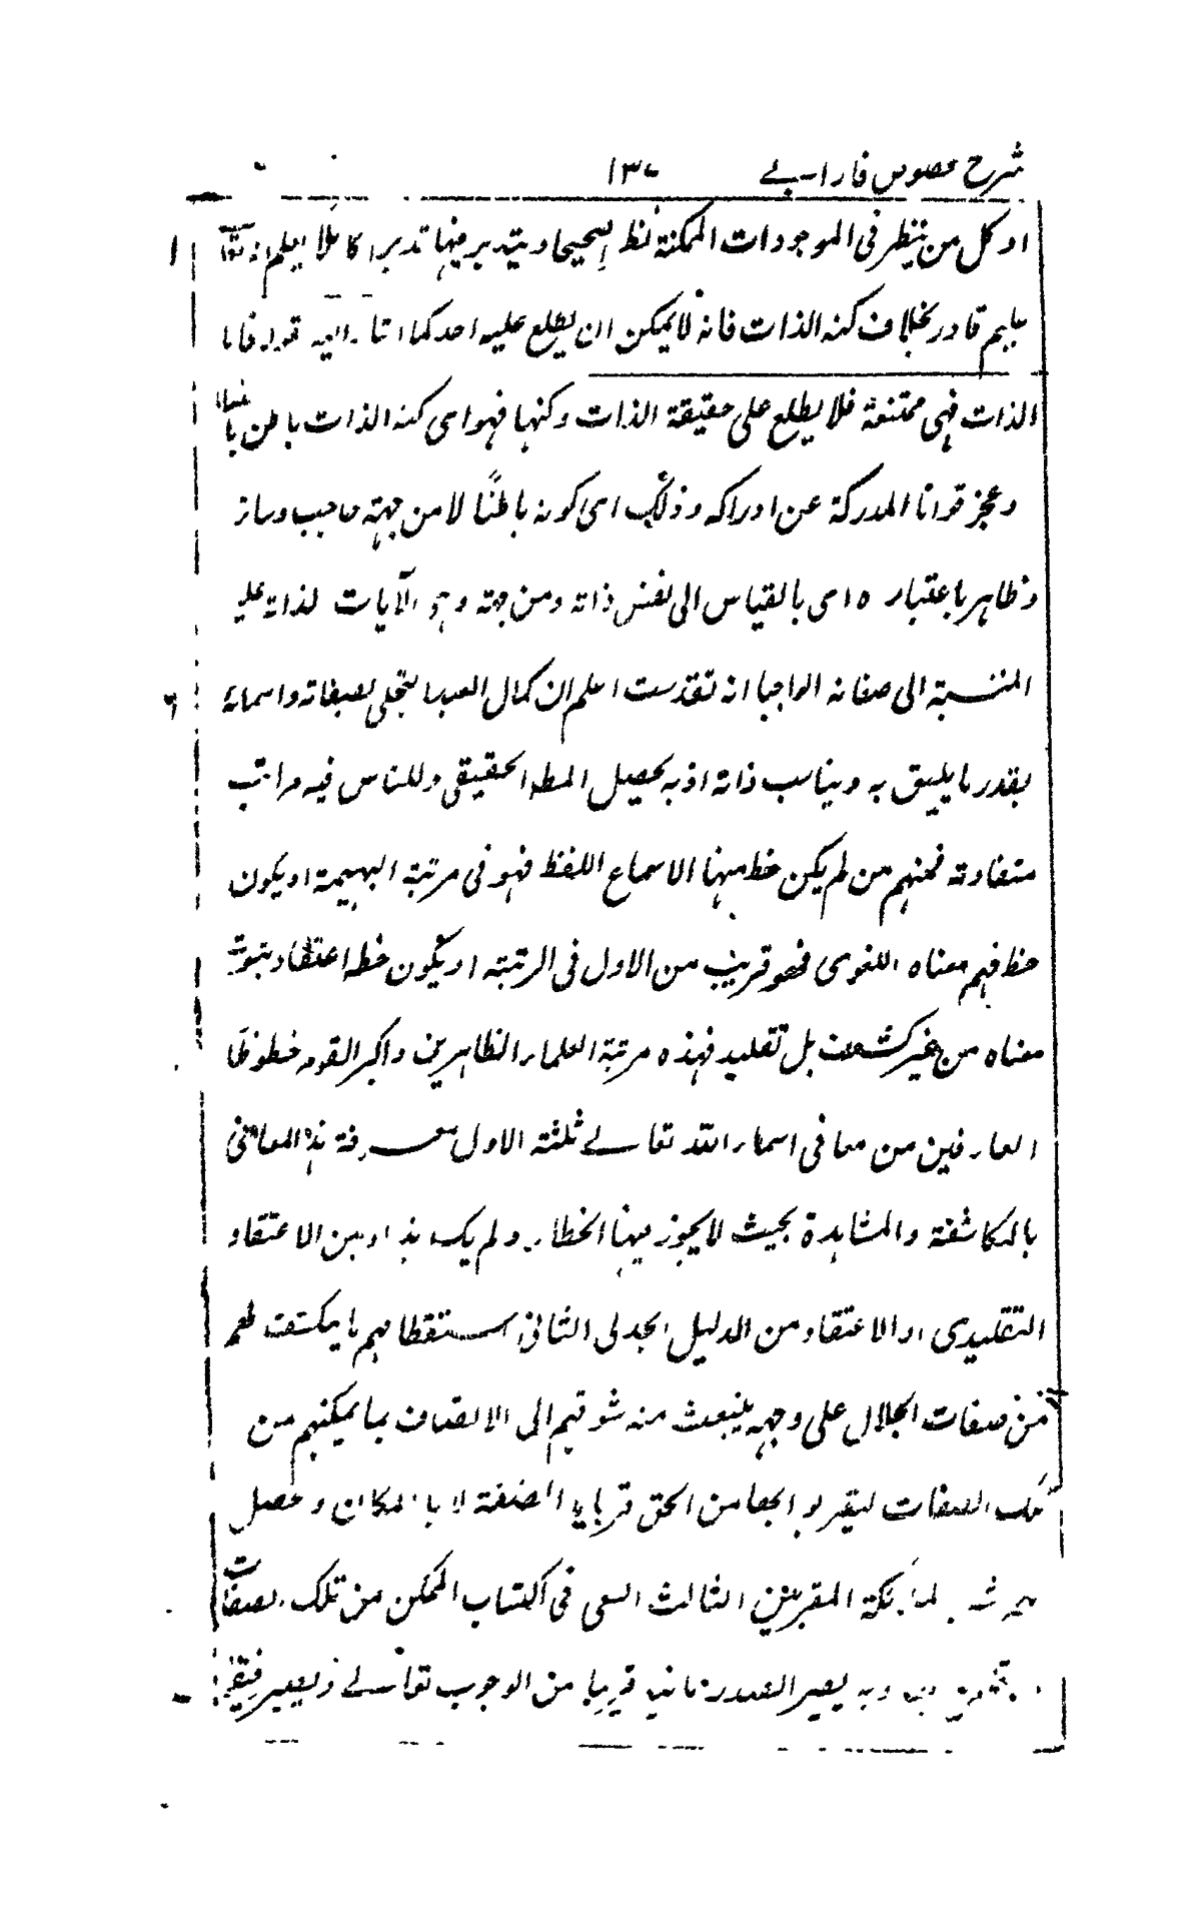 شرح فصوص فارابے ١٣٠
اذ كل من ينظر فى الموجودات الممكنة نظرا صحيحا ويتدبر فيها تدبرا كاملا يعلم انه تعا
عليم قادر بخلاف كنه الذات فانه لا يمكن ان يطلع عليه احد كما اشار اليه قوله فاما
الذات فهى ممتنعة فلا يطلع على حقيقة الذات وكنهها فهو اى كنه الذات باطن
وعجز قوانا المدركة عن ادراكه وذلك اى كونه باطنًا لا من جهته حاجب وساتر
وظاهر باعتباره اى بالقياس الى نفس ذاته ومن جهته وهو الآيات لذاته
المنتسبة الى صفاته تقدست اعلم ان كمال العبد التجلى بصفاته واسمائه
بقدر ما يليق به ويناسب ذاته اذ به يحصل المط الحقيقى وللناس فيه مراتب
متفاوتة فمنهم من لم يكن حظ منها الا سماع اللفظ فهو فى مرتبة البهيمة او يكون
حظ فهم معناه اللغوى فهو قريب من الاول فى الرتبته او يكون حظه اعتقاد ثبوت
معناه من غير كشف بل تقليد فهذه مرتبة العلماء الظاهرين واكبر القوم حظوظا
العارفين من معانى اسماء اللّٰه تعالے ثلثة الاول معرفة هذه المعانى
بالمكاشفة والمشاهدة بحيث لا يجوز فيها الخطاء ولم يك هذا وبين الاعتقاد
التقليدى او الاعتقاد من الدليل الجدلى الثانى استعظامهم ما يكشف لهم
من صفات الجلال على وجهه ينبعث منه شوقهم الى الاتصاف بما يمكنهم من
تلك الصفات ليقربوا بها من الحق قربا بالصفة لا بالمكان وحصل
الملائكة المقربين الثالث السعى فى اكتساب الممكن من تلك الصفات
وبه يصير العبد ربانيا قريبا من الوجوب تعالے ويصير رفيقا